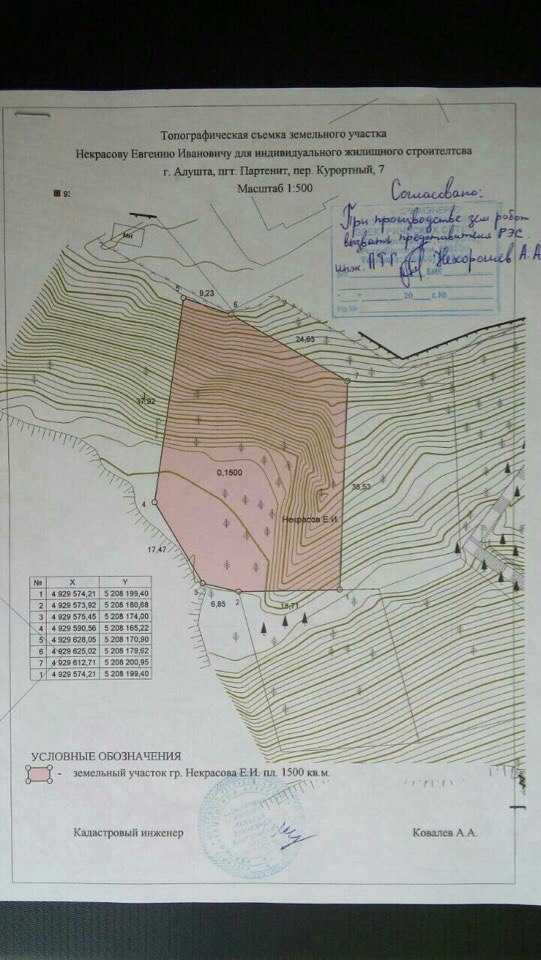 Топографическая съемка земельного участка
Некрасову Евгению Ивановичу для индивидуального жилищного строителтсва
г. Алушта, пгт. Партенит, пер. Курортный, 7
Масштаб 1:500
Согласовано:
При производстве зем работ
вызвать представителя РЭС
инж. ПТГ Нехорошев А.А
20
5
9,23
6
24,65
7
37,92
0,1500
38,53
Некрасов Е.И.
4
17,47
3
6,85
2
18,71
1
№ X Y
1 4 929 574,21 5 208 199,40
2 4 929 573,92 5 208 180,68
3 4 929 575,45 5 208 174,00
4 4 929 590,56 5 208 165,22
5 4 929 628,05 5 208 170,90
6 4 929 625,02 5 208 179,62
7 4 929 612,71 5 208 200,95
1 4 929 574,21 5 208 199,40
УСЛОВНЫЕ ОБОЗНАЧЕНИЯ
- земельный участок гр. Некрасова Е.И. пл. 1500 кв.м.
Кадастровый инженер Ковалев А.А.